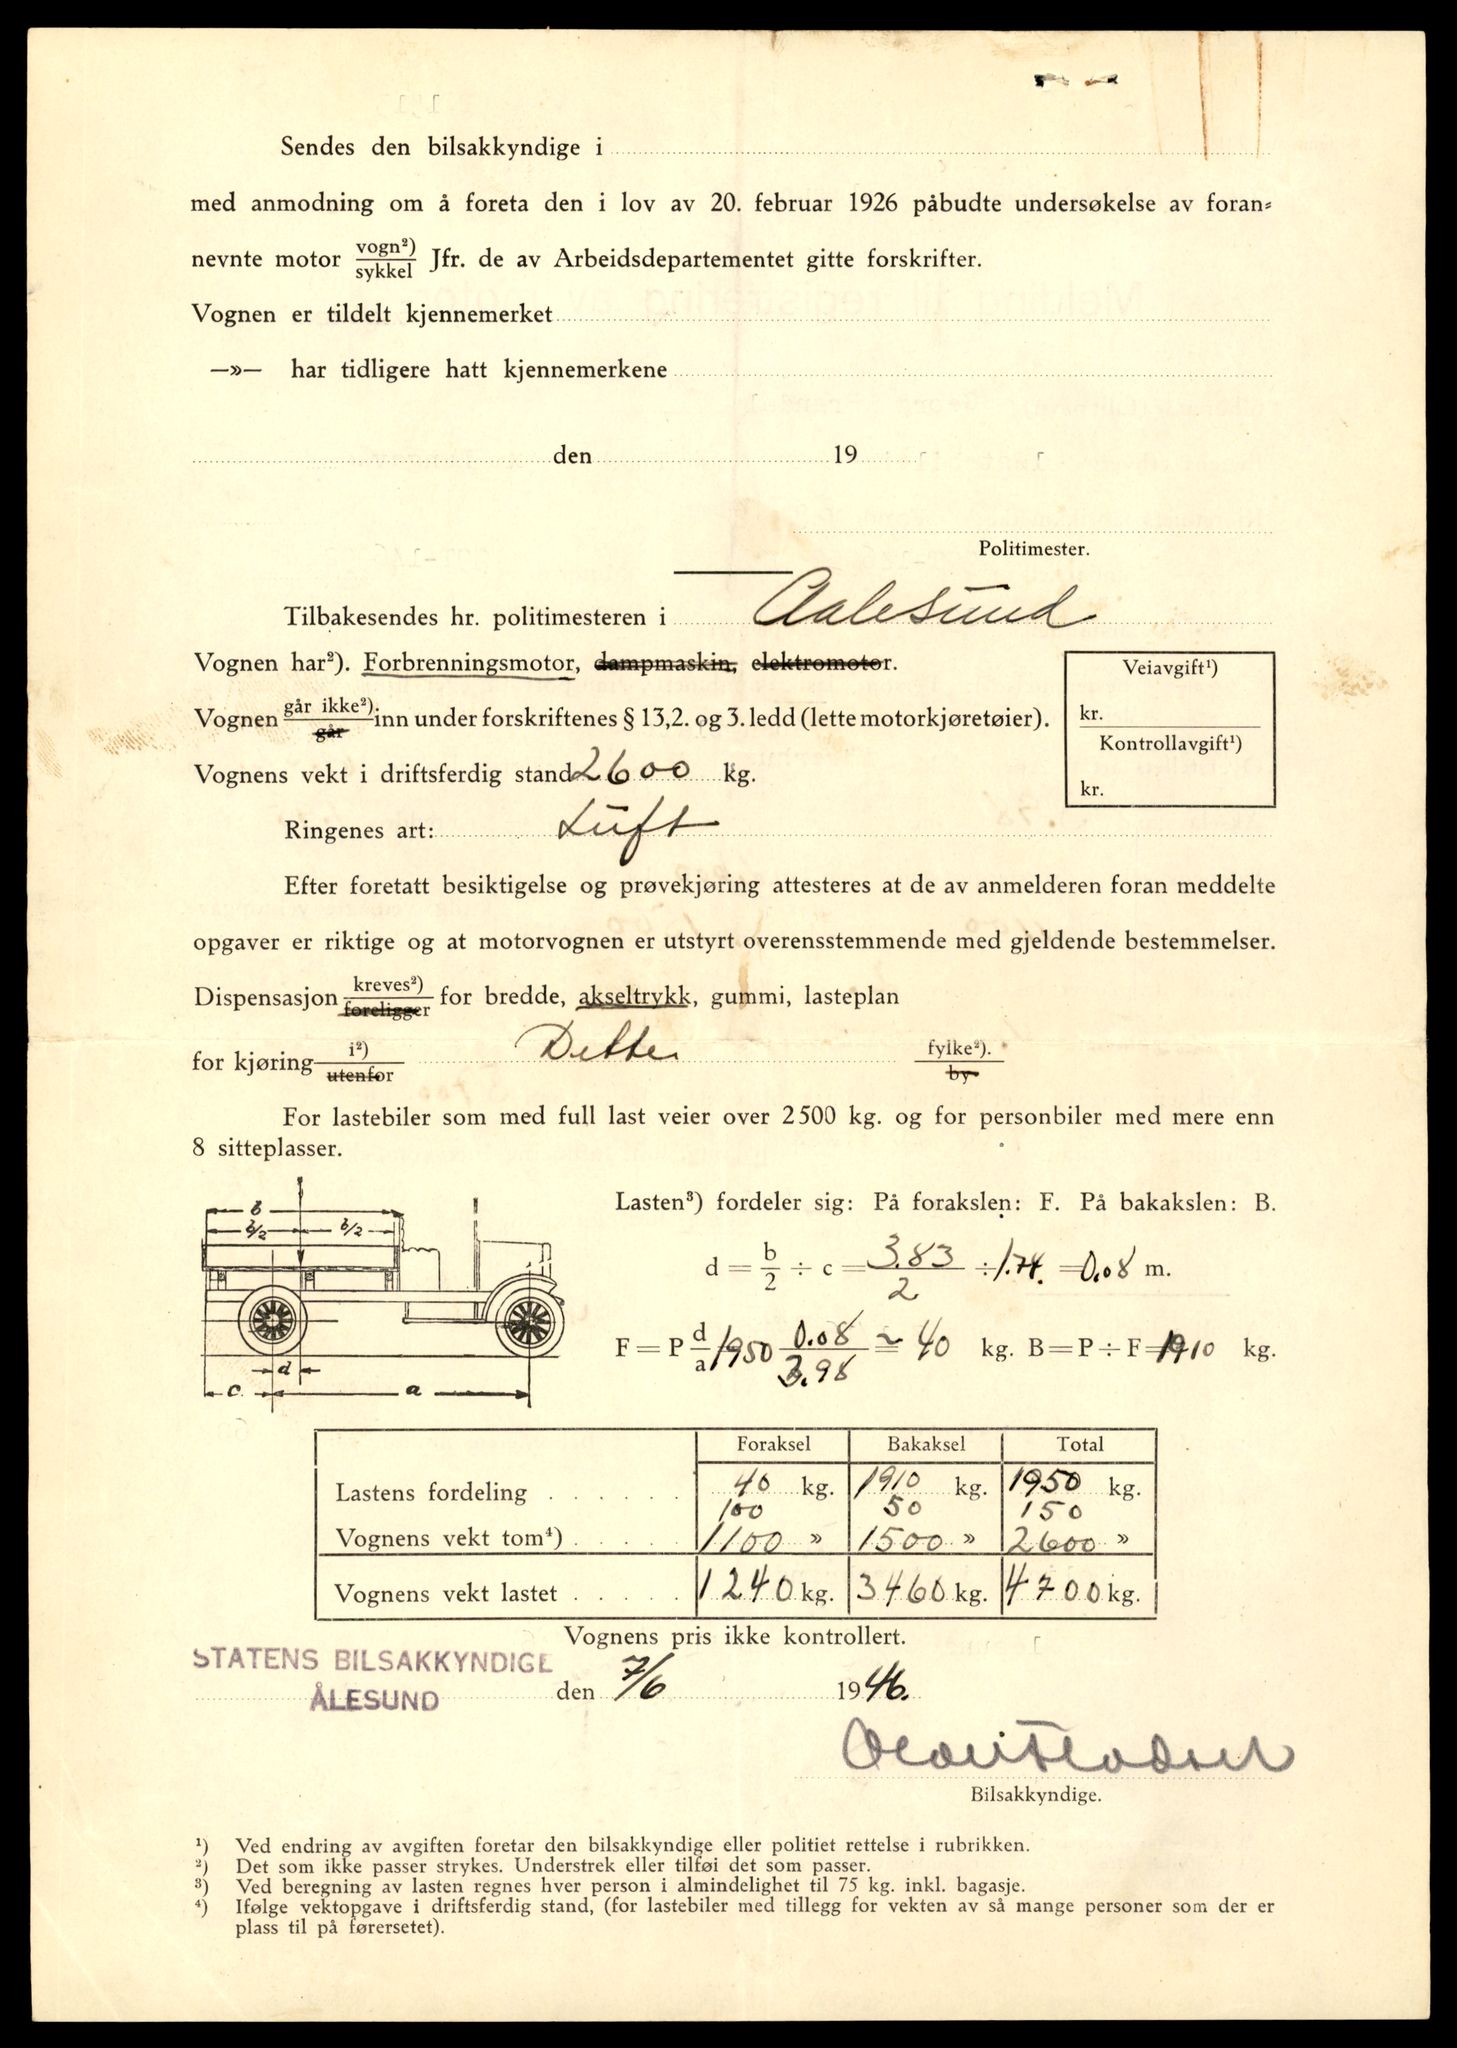 Sendes den bilsakkyndige i
med anmodning om å foreta den i lov av 20. februar 1926 påbudte undersøkelse av foran=
nevnte motor vogn²)/sykkel Jfr. de av Arbeidsdepartementet gitte forskrifter.
Vognen er tildelt kjennemerket
—»— har tidligere hatt kjennemerkene
den 19
Politimester.
Tilbakesendes hr. politimesteren i Aalesund
Vognen har²). Forbrenningsmotor, dampmaskin, elektromotor.
Vognen går ikke²)/går inn under forskriftenes § 13,2. og 3. ledd (lette motorkjøretøier).
Veiavgift¹)
kr.
Kontrollavgift¹)
kr.
Vognens vekt i driftsferdig stand 2600 kg.
Ringenes art: Luft
Efter foretatt besiktigelse og prøvekjøring attesteres at de av anmelderen foran meddelte
opgaver er riktige og at motorvognen er utstyrt overensstemmende med gjeldende bestemmelser.
Dispensasjon kreves²)/foreligger for bredde, akseltrykk, gummi, lasteplan
for kjøring i²)/utenfor Dette fylke²)./by
For lastebiler som med full last veier over 2500 kg. og for personbiler med mere enn
8 sitteplasser.
b
b/2 b/2
d
c. a
Lasten³) fordeler sig: På forakslen: F. På bakakslen: B.
d = b/2 ÷ c = 3.83/2 ÷ 1.74. = 0.08 m.
F = P d/a 1950 0.08/3.98 ≃ 40 kg. B = P ÷ F = 1910 kg.
Foraksel Bakaksel Total
Lastens fordeling . . . . . . 40 kg. 1910 kg. 1950 kg.
100 50 150
Vognens vekt tom⁴) . . . . . 1100 » 1500 » 2600 »
Vognens vekt lastet . . . . . 1240 kg. 3460 kg. 4700 kg.
Vognens pris ikke kontrollert.
STATENS BILSAKKYNDIGE
ÅLESUND den 7/6 1946.
Bilsakkyndige.
¹) Ved endring av avgiften foretar den bilsakkyndige eller politiet rettelse i rubrikken.
²) Det som ikke passer strykes. Understrek eller tilføi det som passer.
³) Ved beregning av lasten regnes hver person i almindelighet til 75 kg. inkl. bagasje.
⁴) Ifølge vektopgave i driftsferdig stand, (for lastebiler med tillegg for vekten av så mange personer som der er
plass til på førersetet).